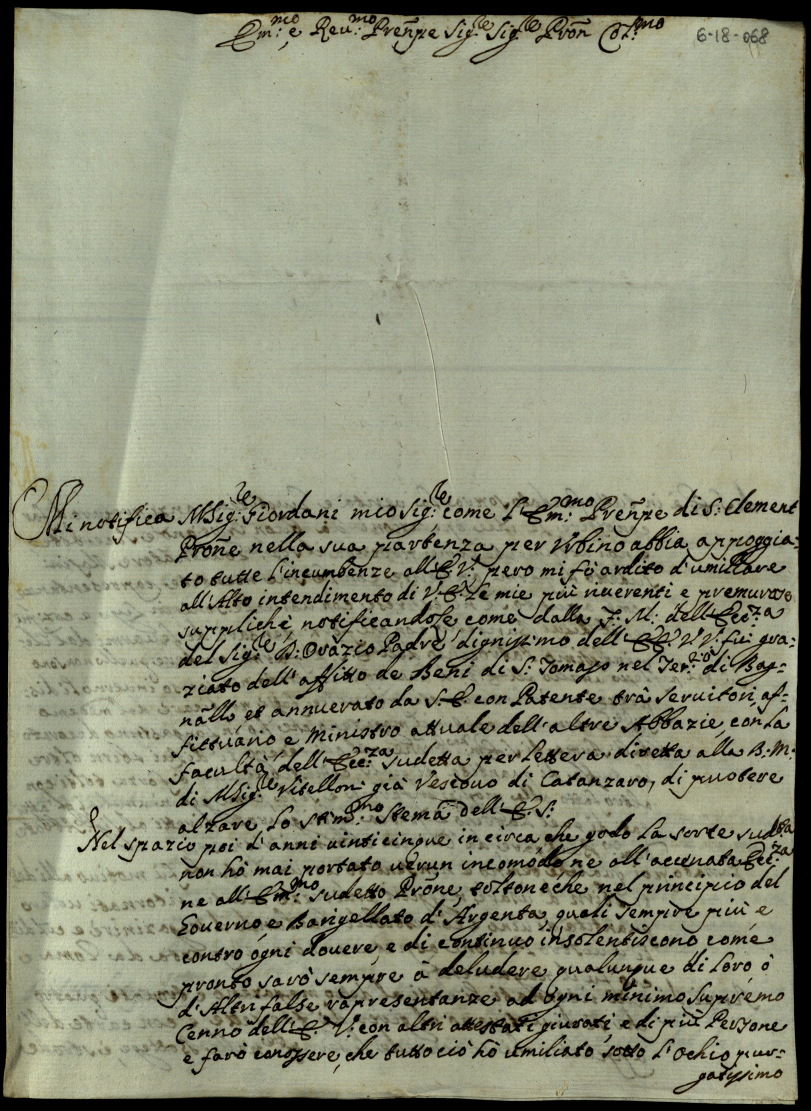 Em:mo e Reu:mo Prenpe Sig:re Sig:re Pron Col:mo
6-18-068
Mi notifica MSig:re Giordani mio Sig:re come l'Em:mo Prenpe di S: Clement
Prone nella sua partenza per Vrbino abbia appoggia-
to tutte l'incumbenze all'E: V: pero mi fò ardito d'umiliare
all'Alto intendimento di V: E: le mie più riuerenti e premurose
suppliche, notificandole come dalla F: M: dell'Ecc:za
del Sig:re D: Orazio Padre dignissimo dell'EE: VV: fui gra-
ziato dell'affitto de Beni di S: Tomaso nel Ter:rio di Bag-
nallo et annuerato da S: E: con Patente trà Seruitori, af-
fittuario e Ministro attuale dell'altre Abbazie, con la
facultà dell'Ecc:za sudetta per lettera diretta alla B: M:
di MSig:re Vitelloni già Vescouo di Catanzaro, di puotere
alzare lo stim:mo stema dell'E: S:
Nel spazio poi d'anni uinticinque in circa che godo la sorte sud:ta
non hò mai portato uerun incomodo ne all'accenata Ecc:za
ne all'Em:mo sudetto Prone, toltone che nel principio del
Gouerno e Barigellato d'Argenta, queli sempre più e
contro ogni douere e di continuo insolentiscono come
pronto sarò sempre à deludere qualunque di loro, ò
d'Altri false rapresentanze ad ogni minimo supremo
Cenno dell'E: V: con altri attestati giurati e di più Persone
e farò conossere, che tutto ciò hò umiliato sotto l'Ochio pur-
gatissimo